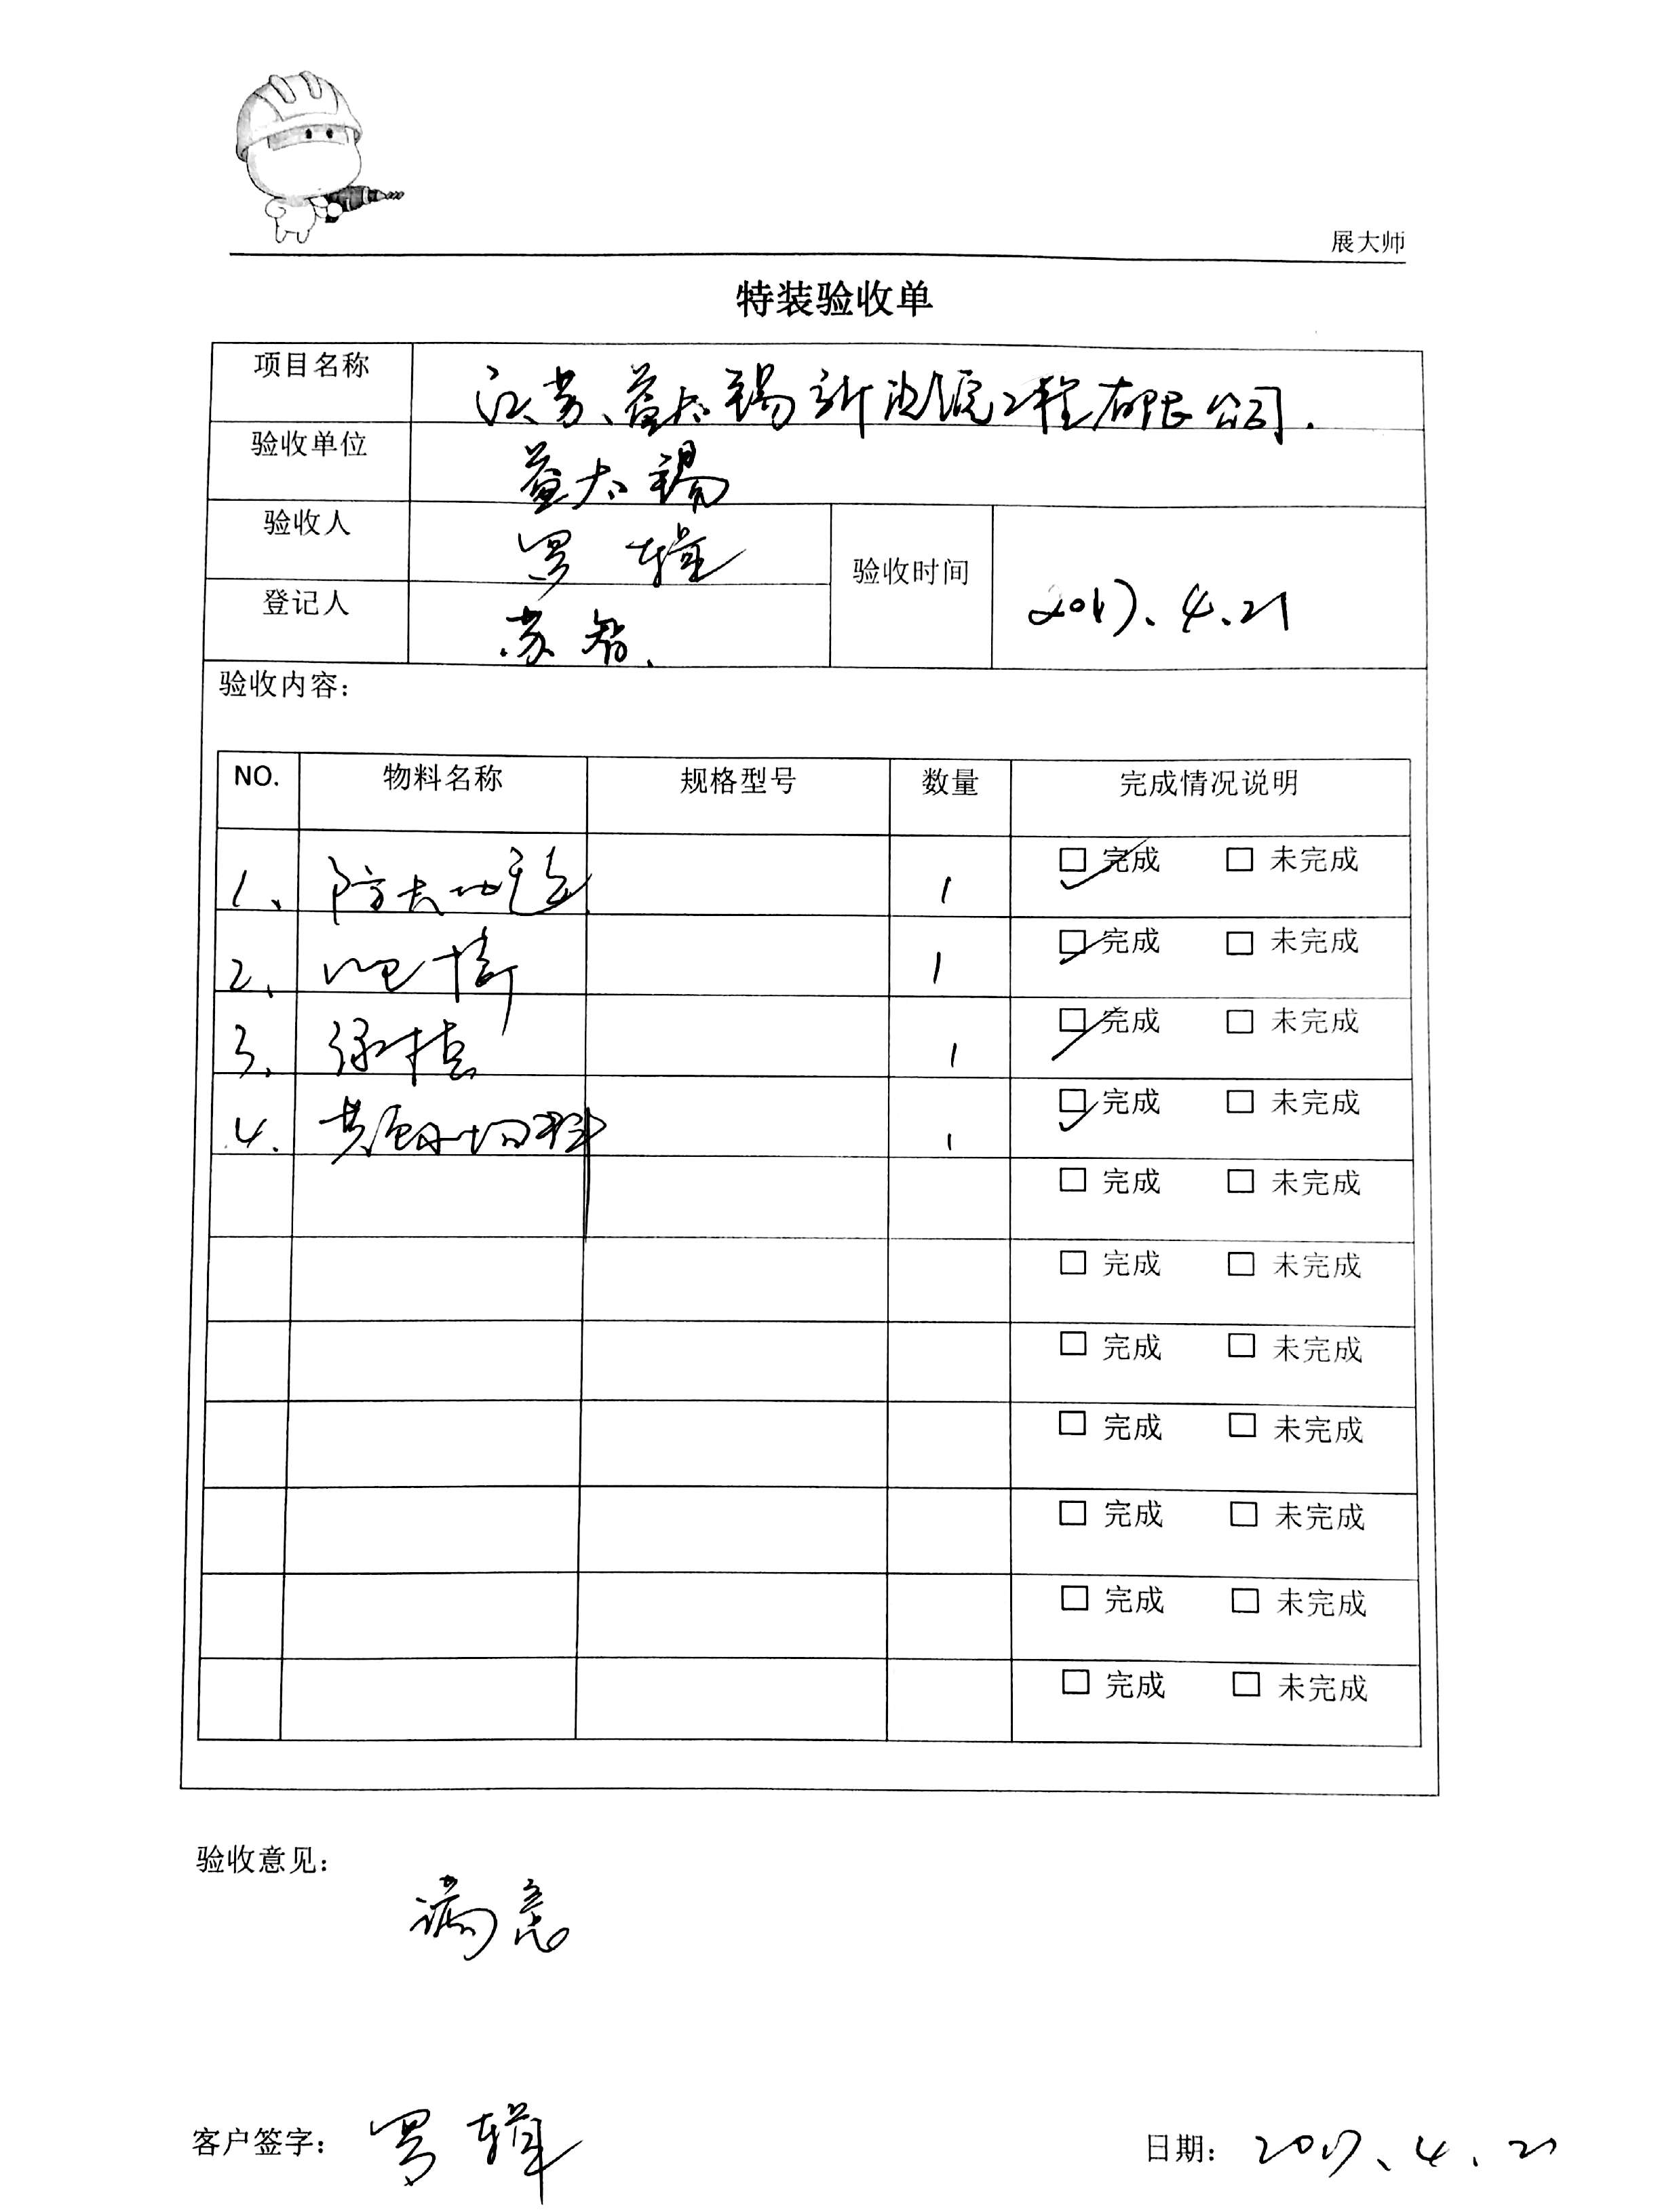 展大师
特装验收单
项目名称 江苏益太锡新能源工程有限公司.
验收单位 益太锡
验收人 罗辑
验收时间 2017.4.21
登记人 苏智.
验收内容：
NO. 物料名称 规格型号 数量 完成情况说明
1、 防火地毯 1 ☑ 完成 □ 未完成
2、 吧椅 1 ☑ 完成 □ 未完成
3、 绿植 1 ☑ 完成 □ 未完成
4. 其余物料 1 ☑ 完成 □ 未完成
□ 完成 □ 未完成
□ 完成 □ 未完成
□ 完成 □ 未完成
□ 完成 □ 未完成
□ 完成 □ 未完成
□ 完成 □ 未完成
□ 完成 □ 未完成
验收意见：
满意
客户签字： 罗辑
日期： 2017.4.21